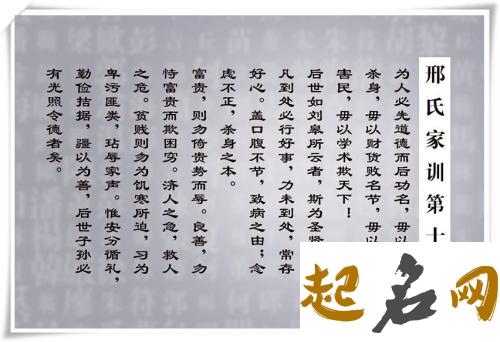 邢氏家训第十
为人必先道德而后功名，毋以
杀身，毋以财货败名节，毋以
害民，毋以学术欺天下！
后世如刘皋所云者，斯为圣贤
凡到处必行好事，力未到处，常存
好心。盖口腹不节，致病之由；念
虑不正，杀身之本。
富贵，则勿倚贵势而辱。良善，勿
恃富贵而欺困穷。济人之急，救人
之危。贫贱则勿为饥寒所迫，习为
卑污匪类，玷辱家声。惟安分循礼，
勤俭拮据，疆以为善，后世子孙必
有光照令德者矣。
起名网